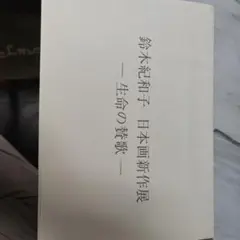 鈴木紀和子 日本画新作展
― 生命の賛歌 ―